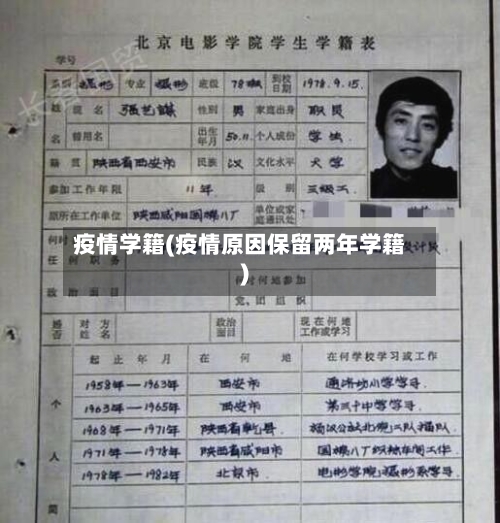 北京电影学院学生学籍表
学号
系别 摄影 专业 摄影 班级 78班 到校日期 1978.9.15.
姓 姓名 张艺谋 性别 男 家庭出身 职员
名 曾用名 出生年月 50.11. 个人成份 学生
籍贯 陕西省西安市 民族 汉 文化水平 大学
参加工作年限 11年 级别 三级工
原所在工作单位 陕西咸阳国棉八厂 单位或家庭通讯处
疫情学籍(疫情原因保留两年学籍
)
何时何地参加
党、团组织
婚否 对方姓名 政治面目 现在何地工作或学习
起止年月 在何地 在何学校学习或工作
1958年—1963年 西安市 通济坊小学学习.
1963年—1965年 西安市 第三十中学学习.
1968年—1971年 陕西省乾县. 杨汉公社北倪二队插队.
1971年—1978年 陕西省咸阳市 国棉八厂织袜车间工作.
1978年—1982年 北京市. 电影学院摄影系学习.
个
人
简